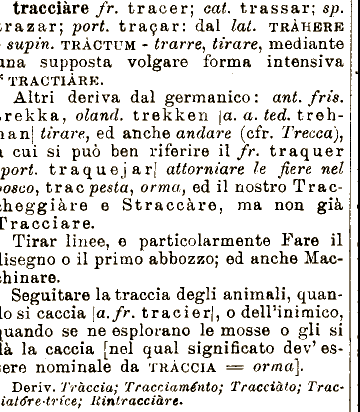 tracciàre fr. tracer; cat. trassar; sp.
trazar; port. traçar: dal lat. TRÀHERE
- supin. TRÀCTUM - trarre, tirare, mediante
una supposta volgare forma intensiva
* TRACTIÀRE.
Altri deriva dal germanico: ant. fris.
trekka, oland. trekken |a. a. ted. treh-
han| tirare, ed anche andare (cfr. Trecca),
a cui si può ben riferire il fr. traquer
|port. traquejar| attorniare le fiere nel
bosco, trac pesta, orma, ed il nostro Trac-
cheggiàre e Straccàre, ma non già
Tracciare.
Tirar linee, e particolarmente Fare il
disegno o il primo abbozzo; ed anche Mac-
chinare.
Seguitare la traccia degli animali, quan-
do si caccia |a. fr. tracier|, o dell'inimico,
quando se ne esplorano le mosse o gli si
dà la caccia [nel qual significato dev' es-
sere nominale da TRÀCCIA = orma].
Deriv. Tràccia; Tracciaménto; Tracciàto; Trac-
ciatóre-trice; Rintracciàre.